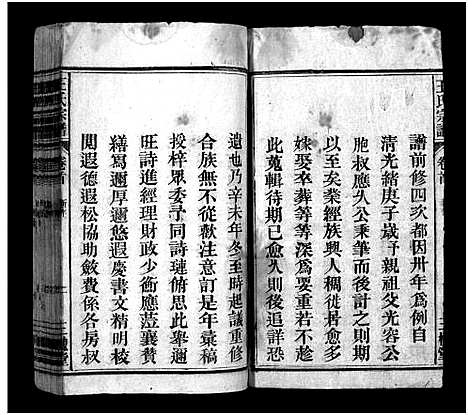 譜前修四次都因卅年爲例自
清光緒庚子歲予親祖父光容公
胞叔應久公秉筆而後計之則期
以至矣業經族興人稠徙居愈多
娶卒葬等等深爲要重若不趁
此蒐輯待期已愈人退追詳恐
遺也乃辛未年冬至時起議重修
合族無不從欺注意訂是年彙稿
授梓眾委予同詩璉俯思此舉邇
旺詩進經理財政少衡應藎襄贊
繕寫邇厚邇悠遐慶書文精明棱
閱遐德遐松協助斂費係各房叔
王氏宗譜
卷首